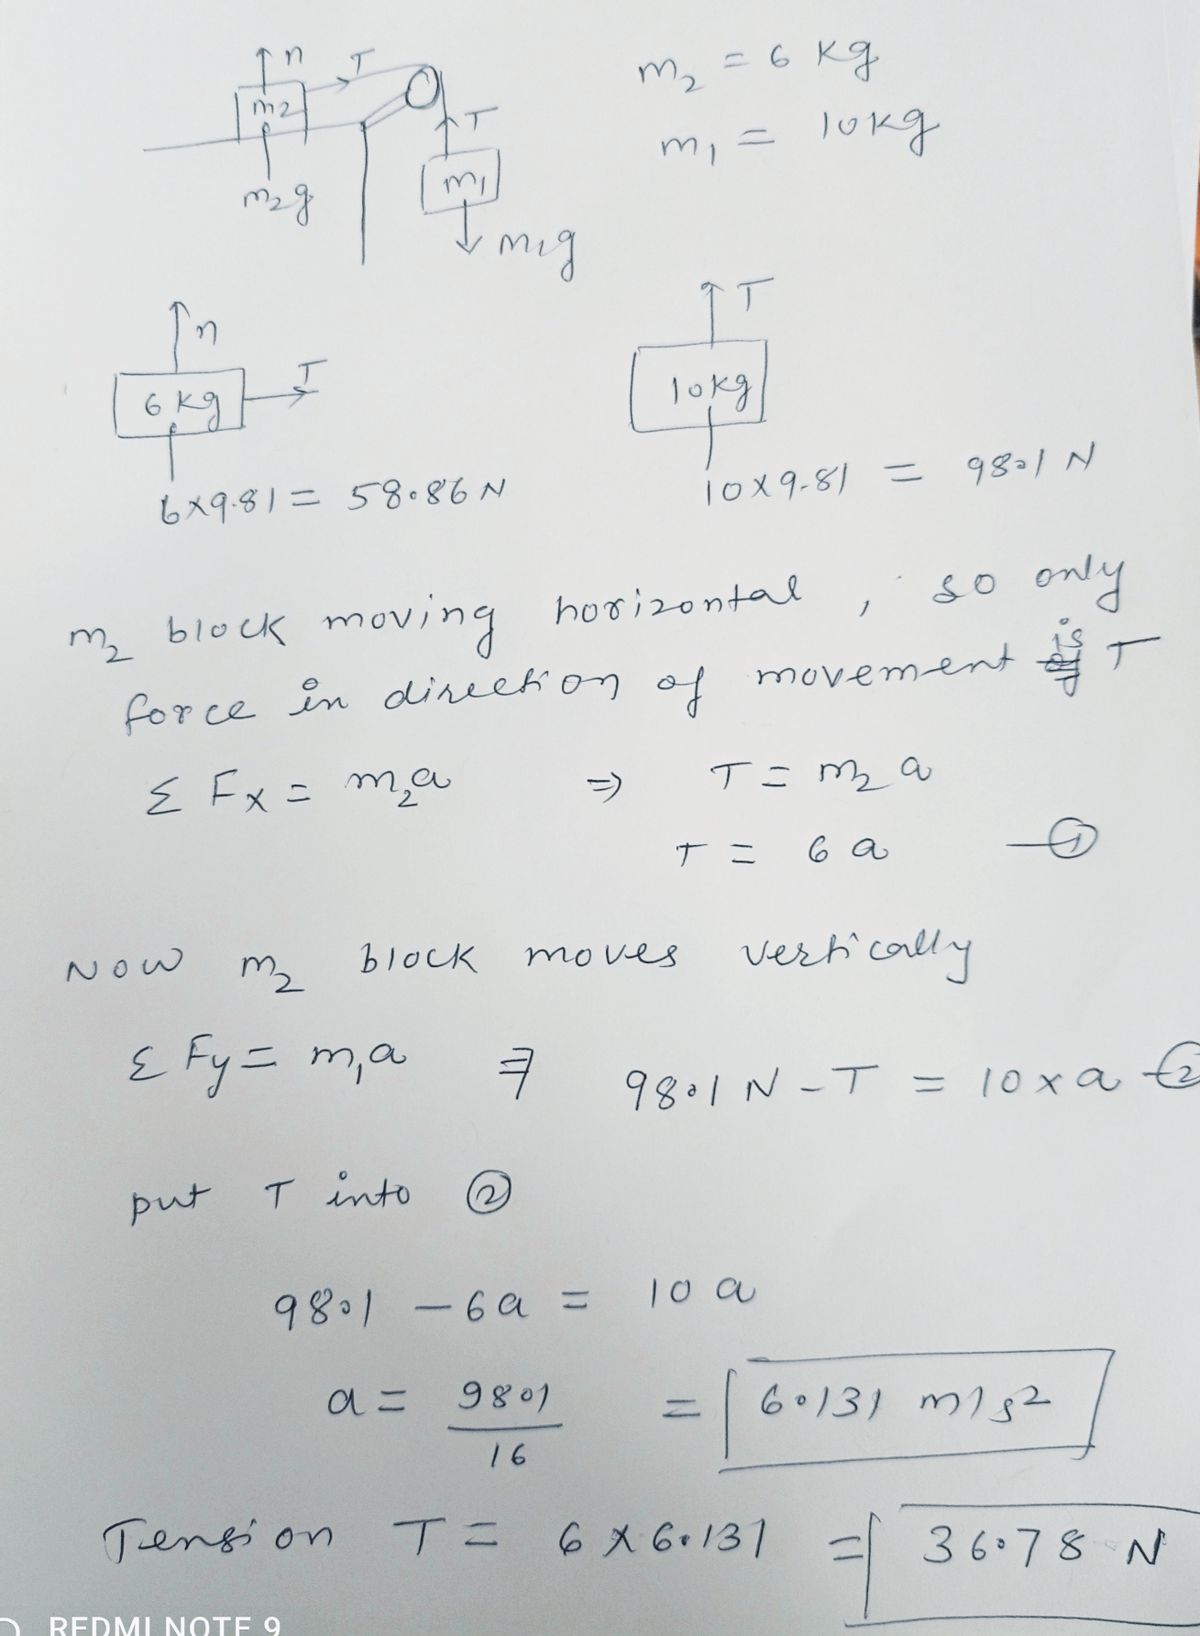 n
T
m2
T
m2g
m1
m1g
m2 = 6 kg
m1 = 10kg
n
6 kg
T
6×9.81 = 58.86 N
T
10kg
10×9.81 = 98.1 N
m2 block moving horizontal, so only
force in direction of movement is T
Σ Fx = m2a ⇒ T = m2 a
T = 6 a —①
Now m2 block moves vertically
Σ Fy = m1a ⇒ 98.1 N - T = 10 × a —②
put T into ②
98.1 - 6a = 10 a
a = 98.1 / 16 = 6.131 m/s²
Tension T = 6 × 6.131 = 36.78 N
REDMI NOTE 9